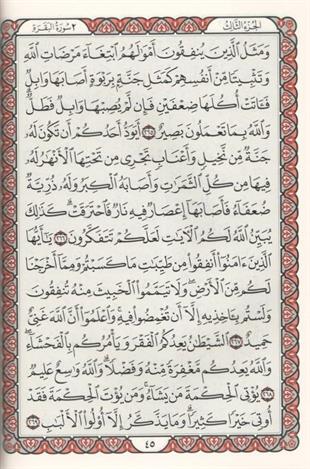 الجزء الثالث
٢ سورة البقرة
ومثل الذين ينفقون أموالهم ابتغاء مرضات الله
وتثبيتا من أنفسهم كمثل جنة بربوة أصابها وابل
فـاتت أكلها ضعفين فإن لم يصبها وابل فطل
والله بما تعملون بصير ٢٦٥ أيود أحدكم أن تكون له
جنة من نخيل وأعناب تجري من تحتها الأنهار له
فيها من كل الثمرات وأصابه الكبر وله ذرية
ضعفاء فأصابها إعصار فيه نار فاحترقت كذلك
يبين الله لكم الآيات لعلكم تتفكرون ٢٦٦ يأيها
الذين ءامنوا أنفقوا من طيبت ما كسبتم ومما أخرجنا
لكم من الأرض ولا تيمموا الخبيث منه تنفقون
ولستم بـاخذيه إلا أن تغمضوا فيه واعلموا أن الله غني
حميد ٢٦٧ الشيطن يعدكم الفقر ويأمركم بالفحشاء
والله يعدكم مغفرة منه وفضلا والله وسع عليم
٢٦٨ يؤتي الحكمة من يشاء ومن يؤت الحكمة فقد
أوتي خيرا كثيرا وما يذكر إلا أولوا الألبب ٢٦٩
٤٥